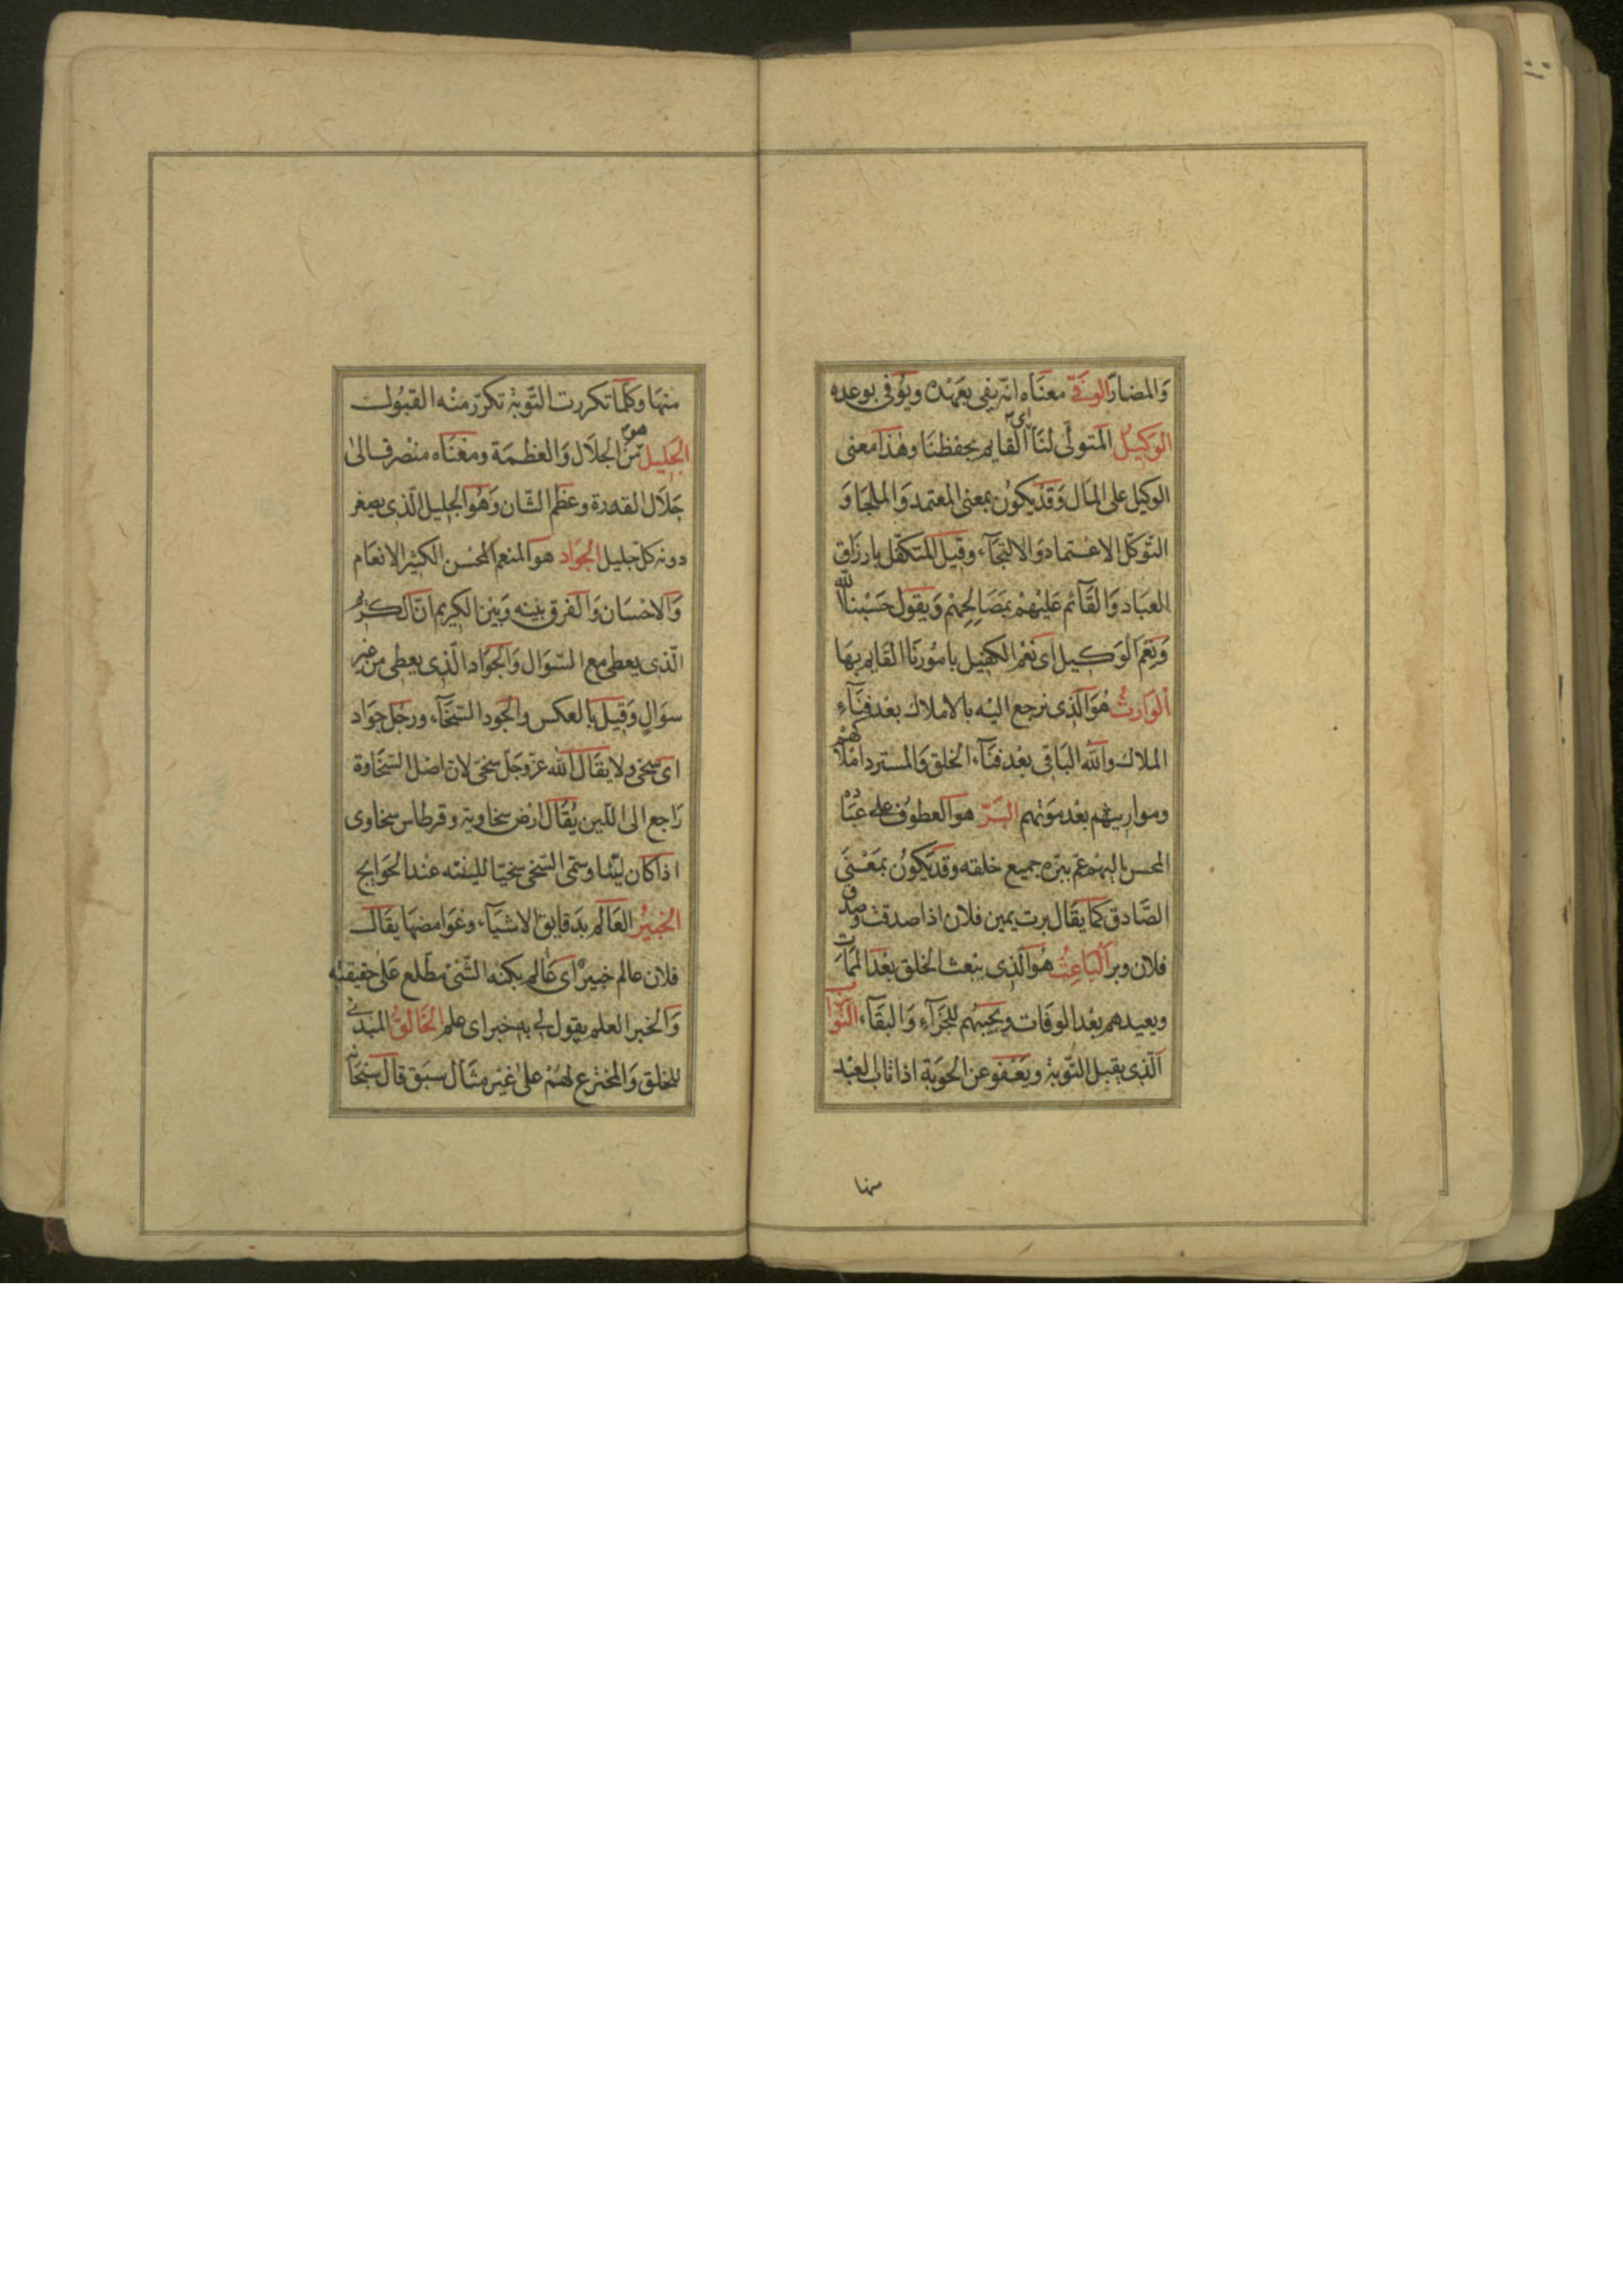 وَالمضارّ الوفيّ معنَاه انّه يفى بعَهْده ويُوفى بوعده
الوَكيلُ المتولّى لنَا اى القايم بحفظنَا وهٰذا معنى
الوكيل على المَال وَقَد يكوُن بمعنى المعتمد وَالملجَا وَ
التّوكّل الاعتماد وَالالتجَآء وقيل المتكفّل بارزَاق
العبَاد وَالقَائم عَليْهمْ بمَصَالِحِهِمْ وَيقول حَسْبنَا اللّه
وَنِعْمَ الوَكيل اى نعْمَ الكفيل بامُورنَا القَايم بهَا
الوَارثُ هُوَ الّذى ترجع اليْه بالاملاك بعْد فنَآءِ
الملاك واللّه البَاقى بعْد فنَآء الخلق وَالمسترد املاكهمْ
ومواريثهم بعْد مَوْتهم البَرّ هو العطوُف على عبَاده
المحسن اليهمْ عمّ ببرّه جميع خلقه وقد يكوُن بمَعْنَى
الصَّادق كمَا يقَال برت يمين فلان اذا صدقت وصدق
فلان وبر البَاعِثُ هُوَ الّذى يبْعث الخلق بعْد المَمَات
ويعيدهم بعْد الوفَات ويحييهُم للجَزَآءِ وَالبقَآء التوّاب
الّذى يقبل التّوبة ويَعْفو عن الحُوبَة اذا تاب العبْد
منها
منهَا وكلّما تكررت التّوبة تكرّر منْه القبُول
الجَليل هو من الجلَال وَالعظمَة ومعْنَاه منْصرف الىٰ
جَلَال القدرة وعظم الشّان وَهُوَ الجليل الّذى يصغر
دونه كلّ جليل الجَوَاد هو المنعم المحْسن الكثير الانعَام
وَالاحْسَان وَالفرق بيْنه وَبيْن الكريم انّ الكريم
الّذى يعطى مع السّوَال وَالجَوَاد الّذى يعطى من غير
سوَالٍ وَقيل بالعكس والجُود السّخَآء ورجُل جوَاد
اى سخى ولا يقَال اللّه عزّ وجَلّ سخىّ لان اصْل السّخَاوة
رَاجع الى اللّين يُقَال ارْض سخاوية وقرطاس سخاوى
اذا كان ليّنا وسمّى السّخى سخيّا للينته عند الحَوَايج
الخبيرُ العَالم بدَقايق الاشيَآء وغوَامضهَا يقَال
فلان عالم خبيرٌ اى عَالم بكنه الشّئ مطّلع عَلى حقيقته
وَالخبر العلم يقول لى به خبر اى علم الخَالِقُ المبدئ
للخلق وَالمخترع لهُمْ علىٰ غيْر مثَال سبَق قال سبْحَانه